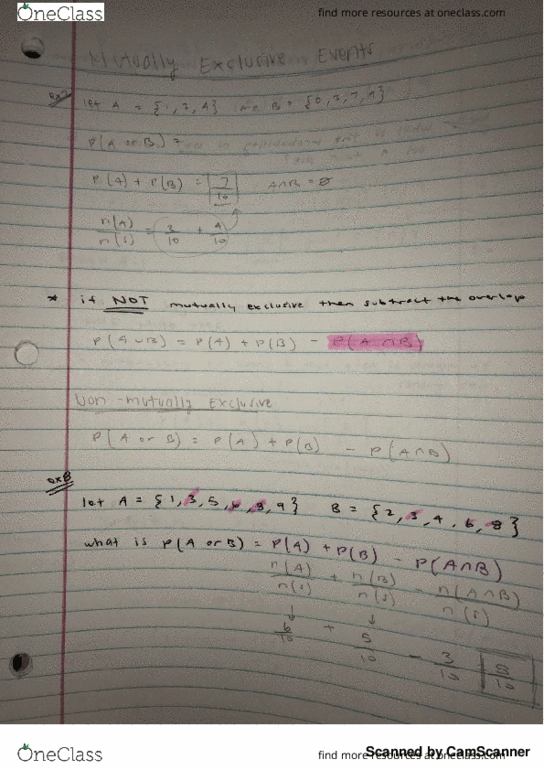 OneClass
find more resources at oneclass.com
Mutually Exclusive Events
let A = {1, 3, 4} B = {0, 2, 7, 9}
P(A or B) =
P(A) + P(B) = 7/10 A∩B = ø
n(A)/n(s) = 3/10 + 4/10
* if NOT mutually exclusive then subtract the overlap
P(A∪B) = P(A) + P(B) - P(A∩B)
Non-mutually Exclusive
P(A or B) = P(A) + P(B) - P(A∩B)
ex8
let A = {1, 3, 5, 6, 8, 9} B = {2, 3, 4, 6, 8}
what is P(A or B) = P(A) + P(B) - P(A∩B)
n(A)/n(s) + n(B)/n(s) - n(A∩B)/n(s)
↓ ↓
6/10 + 5/10 - 3/10 8/10
OneClass
find more resources at oneclass.com
Scanned by CamScanner